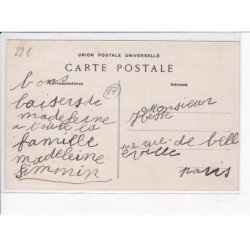 22€
UNION POSTALE UNIVERSELLE
CARTE POSTALE
Correspondance
Adresse
bons
baisers de
madeleine
a toute la
famille
madeleine
Simonin
77
Monsieur
Hesse
102 rue de bell
eville
paris